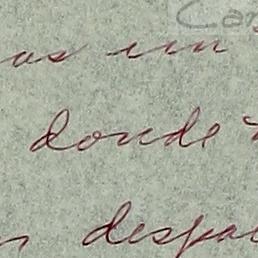 Car
as un
donde
despa